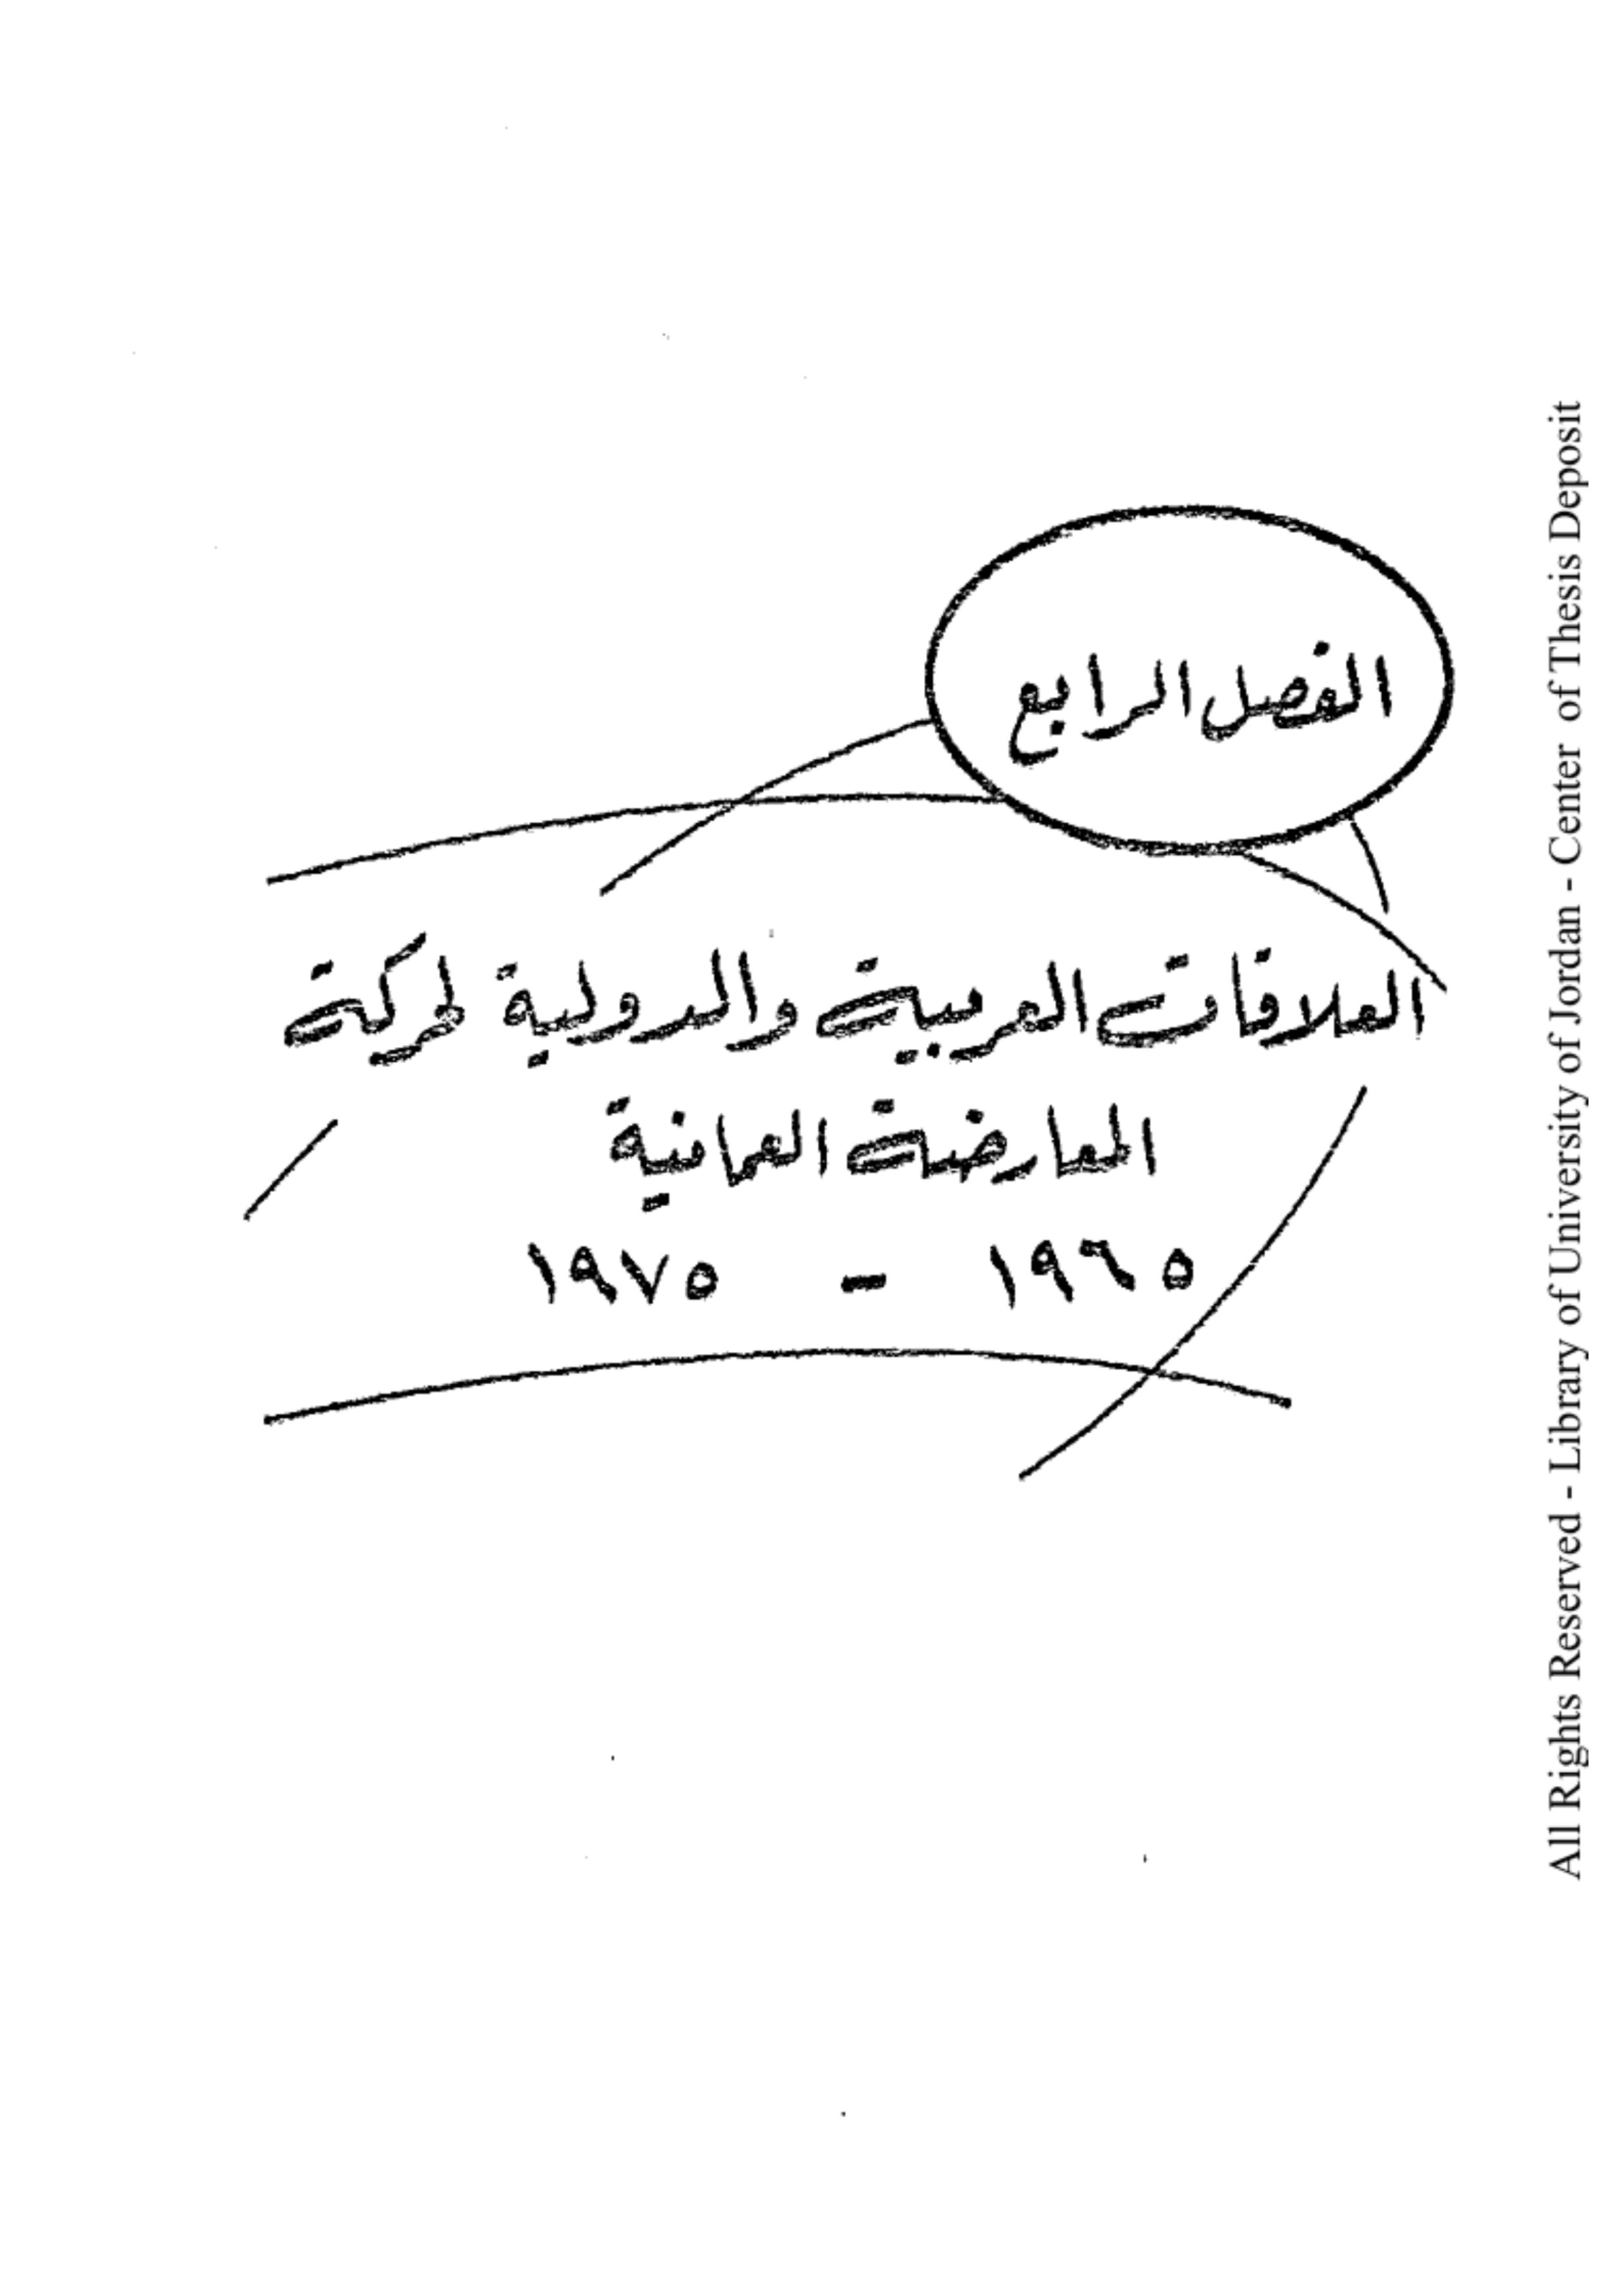 الفصل الرابع
العلاقات العربية والدولية لحركة
المعارضة العمانية
١٩٦٥ - ١٩٧٥
All Rights Reserved - Library of University of Jordan - Center of Thesis Deposit